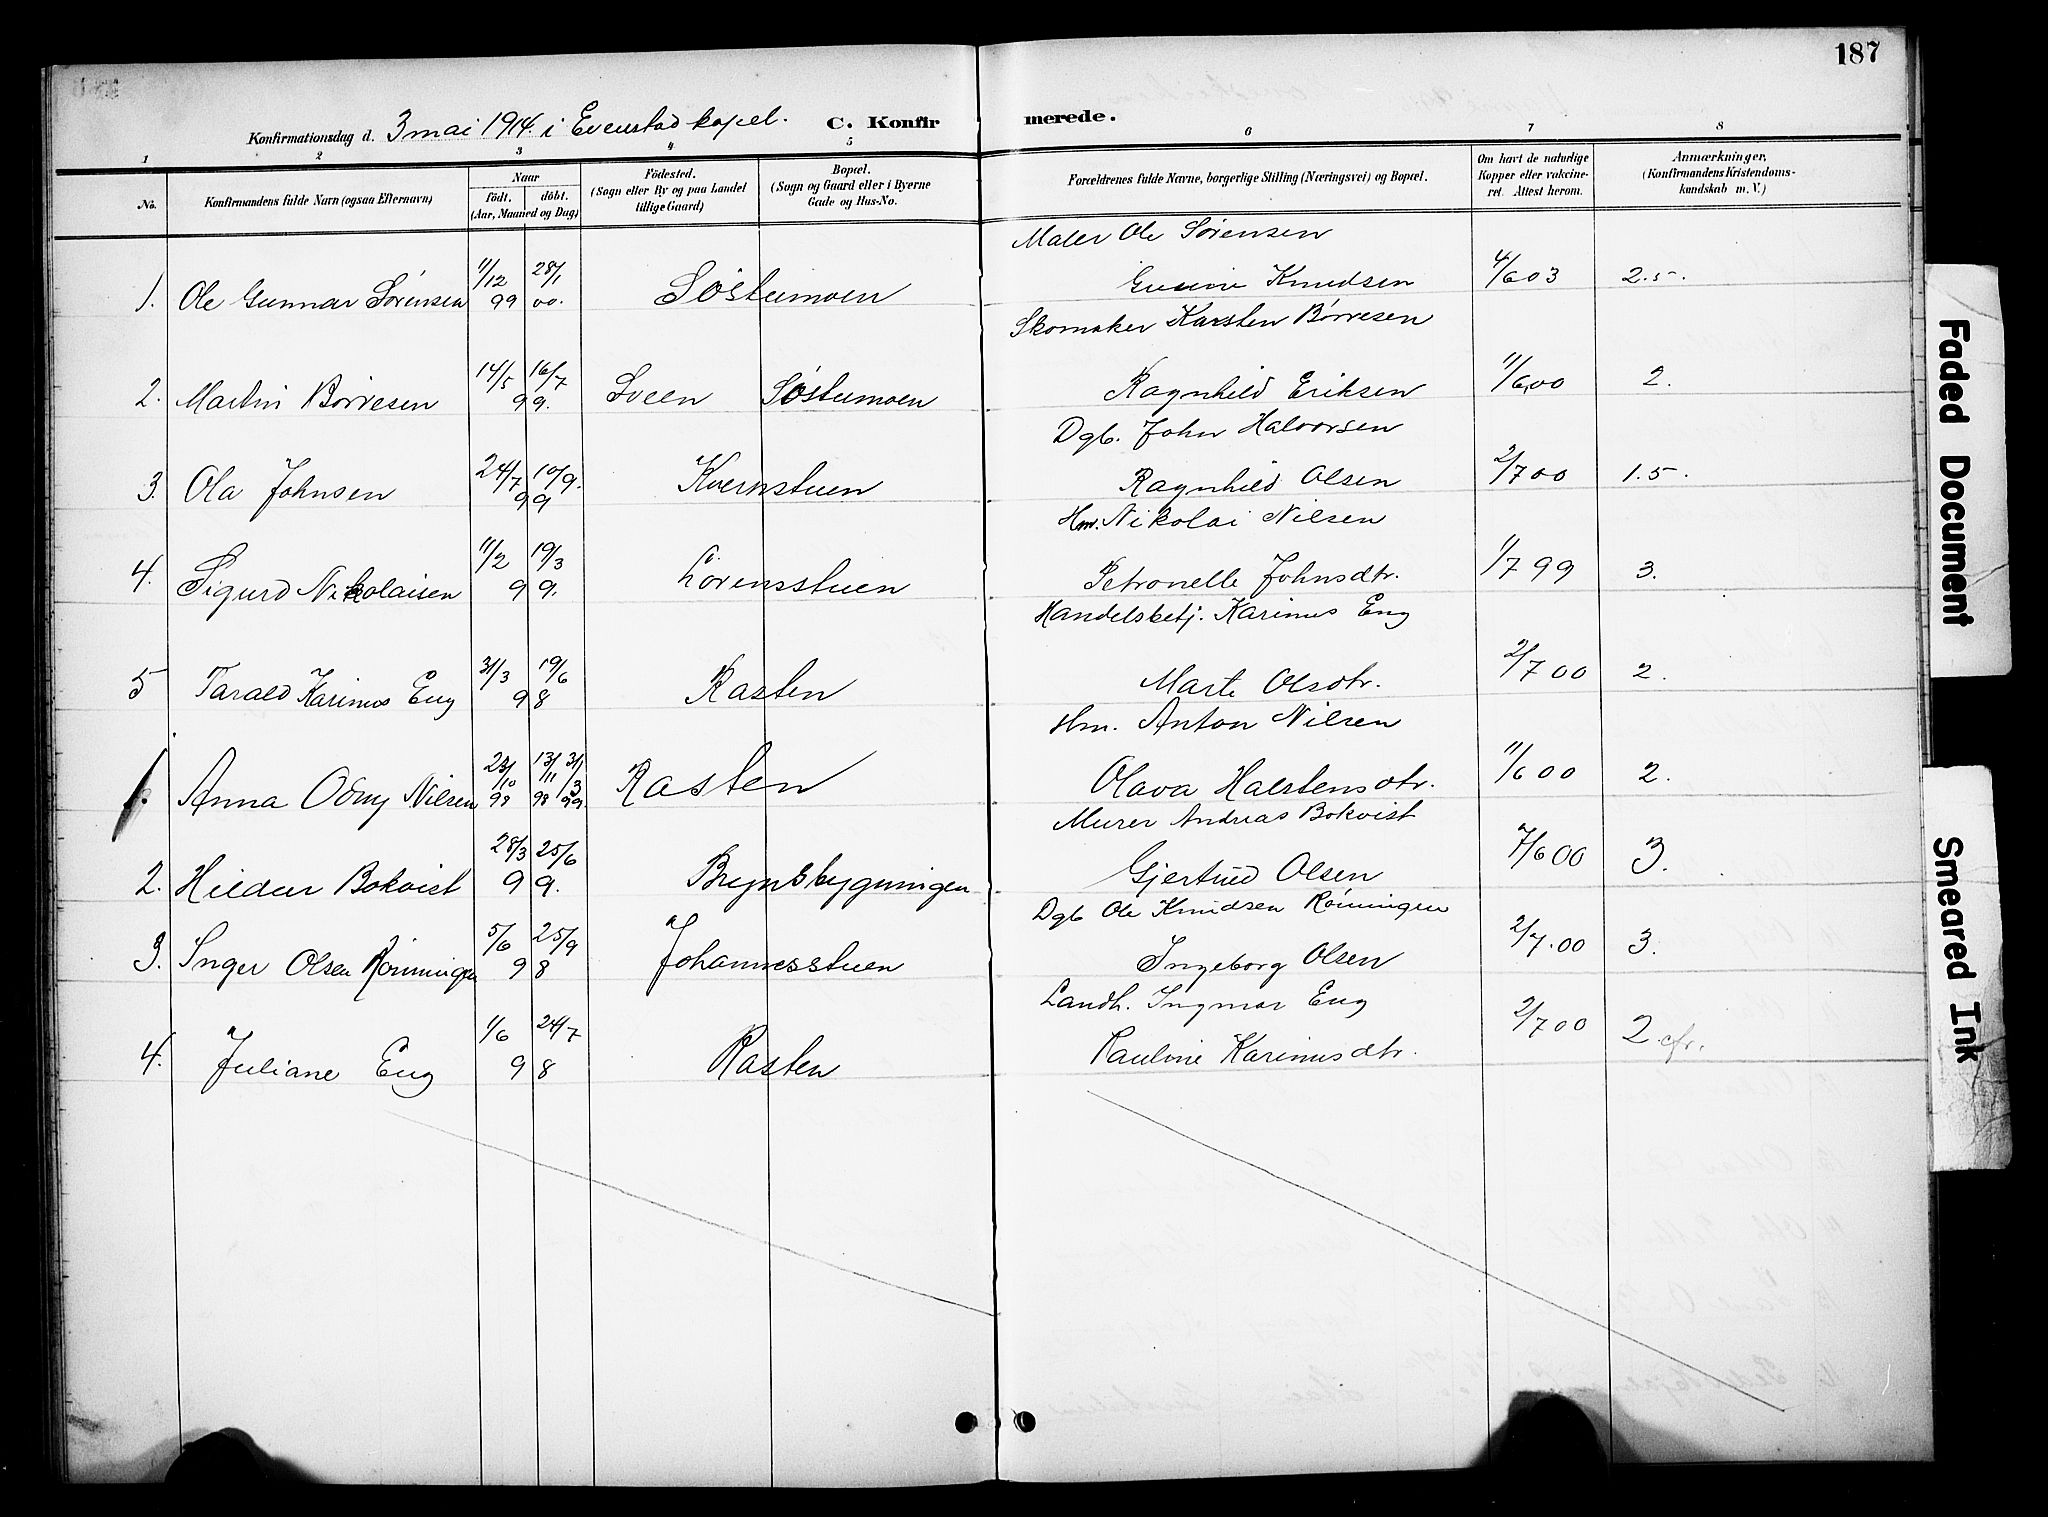 187
Konfirmationsdag d. 3 mai 1914 i Evenstad kapel. C. Konfir merede.
1 2 3 4 5 6 7 8
No. Konfirmandens fulde Navn (ogsaa Efternavn) Naar födt. döbt. (Aar, Maaned og Dag) Födested. (Sogn eller By og paa Landet tillige Gaard) Bopæl. (Sogn og Gaard eller i Byerne Gade og Hus-No. Forældrenes fulde Navne, borgerlige Stilling (Næringsvei) og Bopæl. Om havt de naturlige Kopper eller vakcineret. Attest herom. Anmærkninger, (Konfirmandens Kristendomskundskab m. V.)
Maler Ole Sørensen
1. Ole Gunnar Sørensen 11/12 99 28/1 00. Söstumoen Gusine Knudsen 4/6 03 2.5.
Skomaker Karsten Børresen
2. Martin Børresen 14/5 16/7 99. Sveen Söstumoen Ragnhild Eriksen 11/6 00 2.
Dgb. John Halvorsen
3. Ola Johnsen 24/7 10/9. 99 Kvernstuen Ragnhild Olsen 2/7 00 1.5.
Hm. Nikolai Nilsen
4. Sigurd Nikolaisen 11/2 19/3 99. Lorensstuen Petronelle Johnsdtr. 1/7 99 3.
Handelsbetj. Karinus Eng
5 Tarald Karinus Eng 31/3 19/6 98 Rasten Marte Olsdtr. 2/7 00 2.
Hm. Anton Nilsen
1. Anna Odny Nilsen 23/10 98 13/11 98 31/3 99. Rasten Olava Halstensdtr. 11/6 00 2.
Murer Andreas Bokvist
2. Hildur Bokvist 28/3 25/6 99. Brynsbygningen Gjertrud Olsen 7/6 00 3.
Dgb Ole Knudsen Rønningen
3. Inger Olsen Rønningen 5/6 25/9 98 Johannesstuen Ingeborg Olsen 2/7.00 3.
Landh. Ingmar Eng
4. Juliane Eng 1/6 24/7 98 Rasten Pauline Karinusdtr. 2/7 00 2 cfr.
Faded Document
Smeared Ink